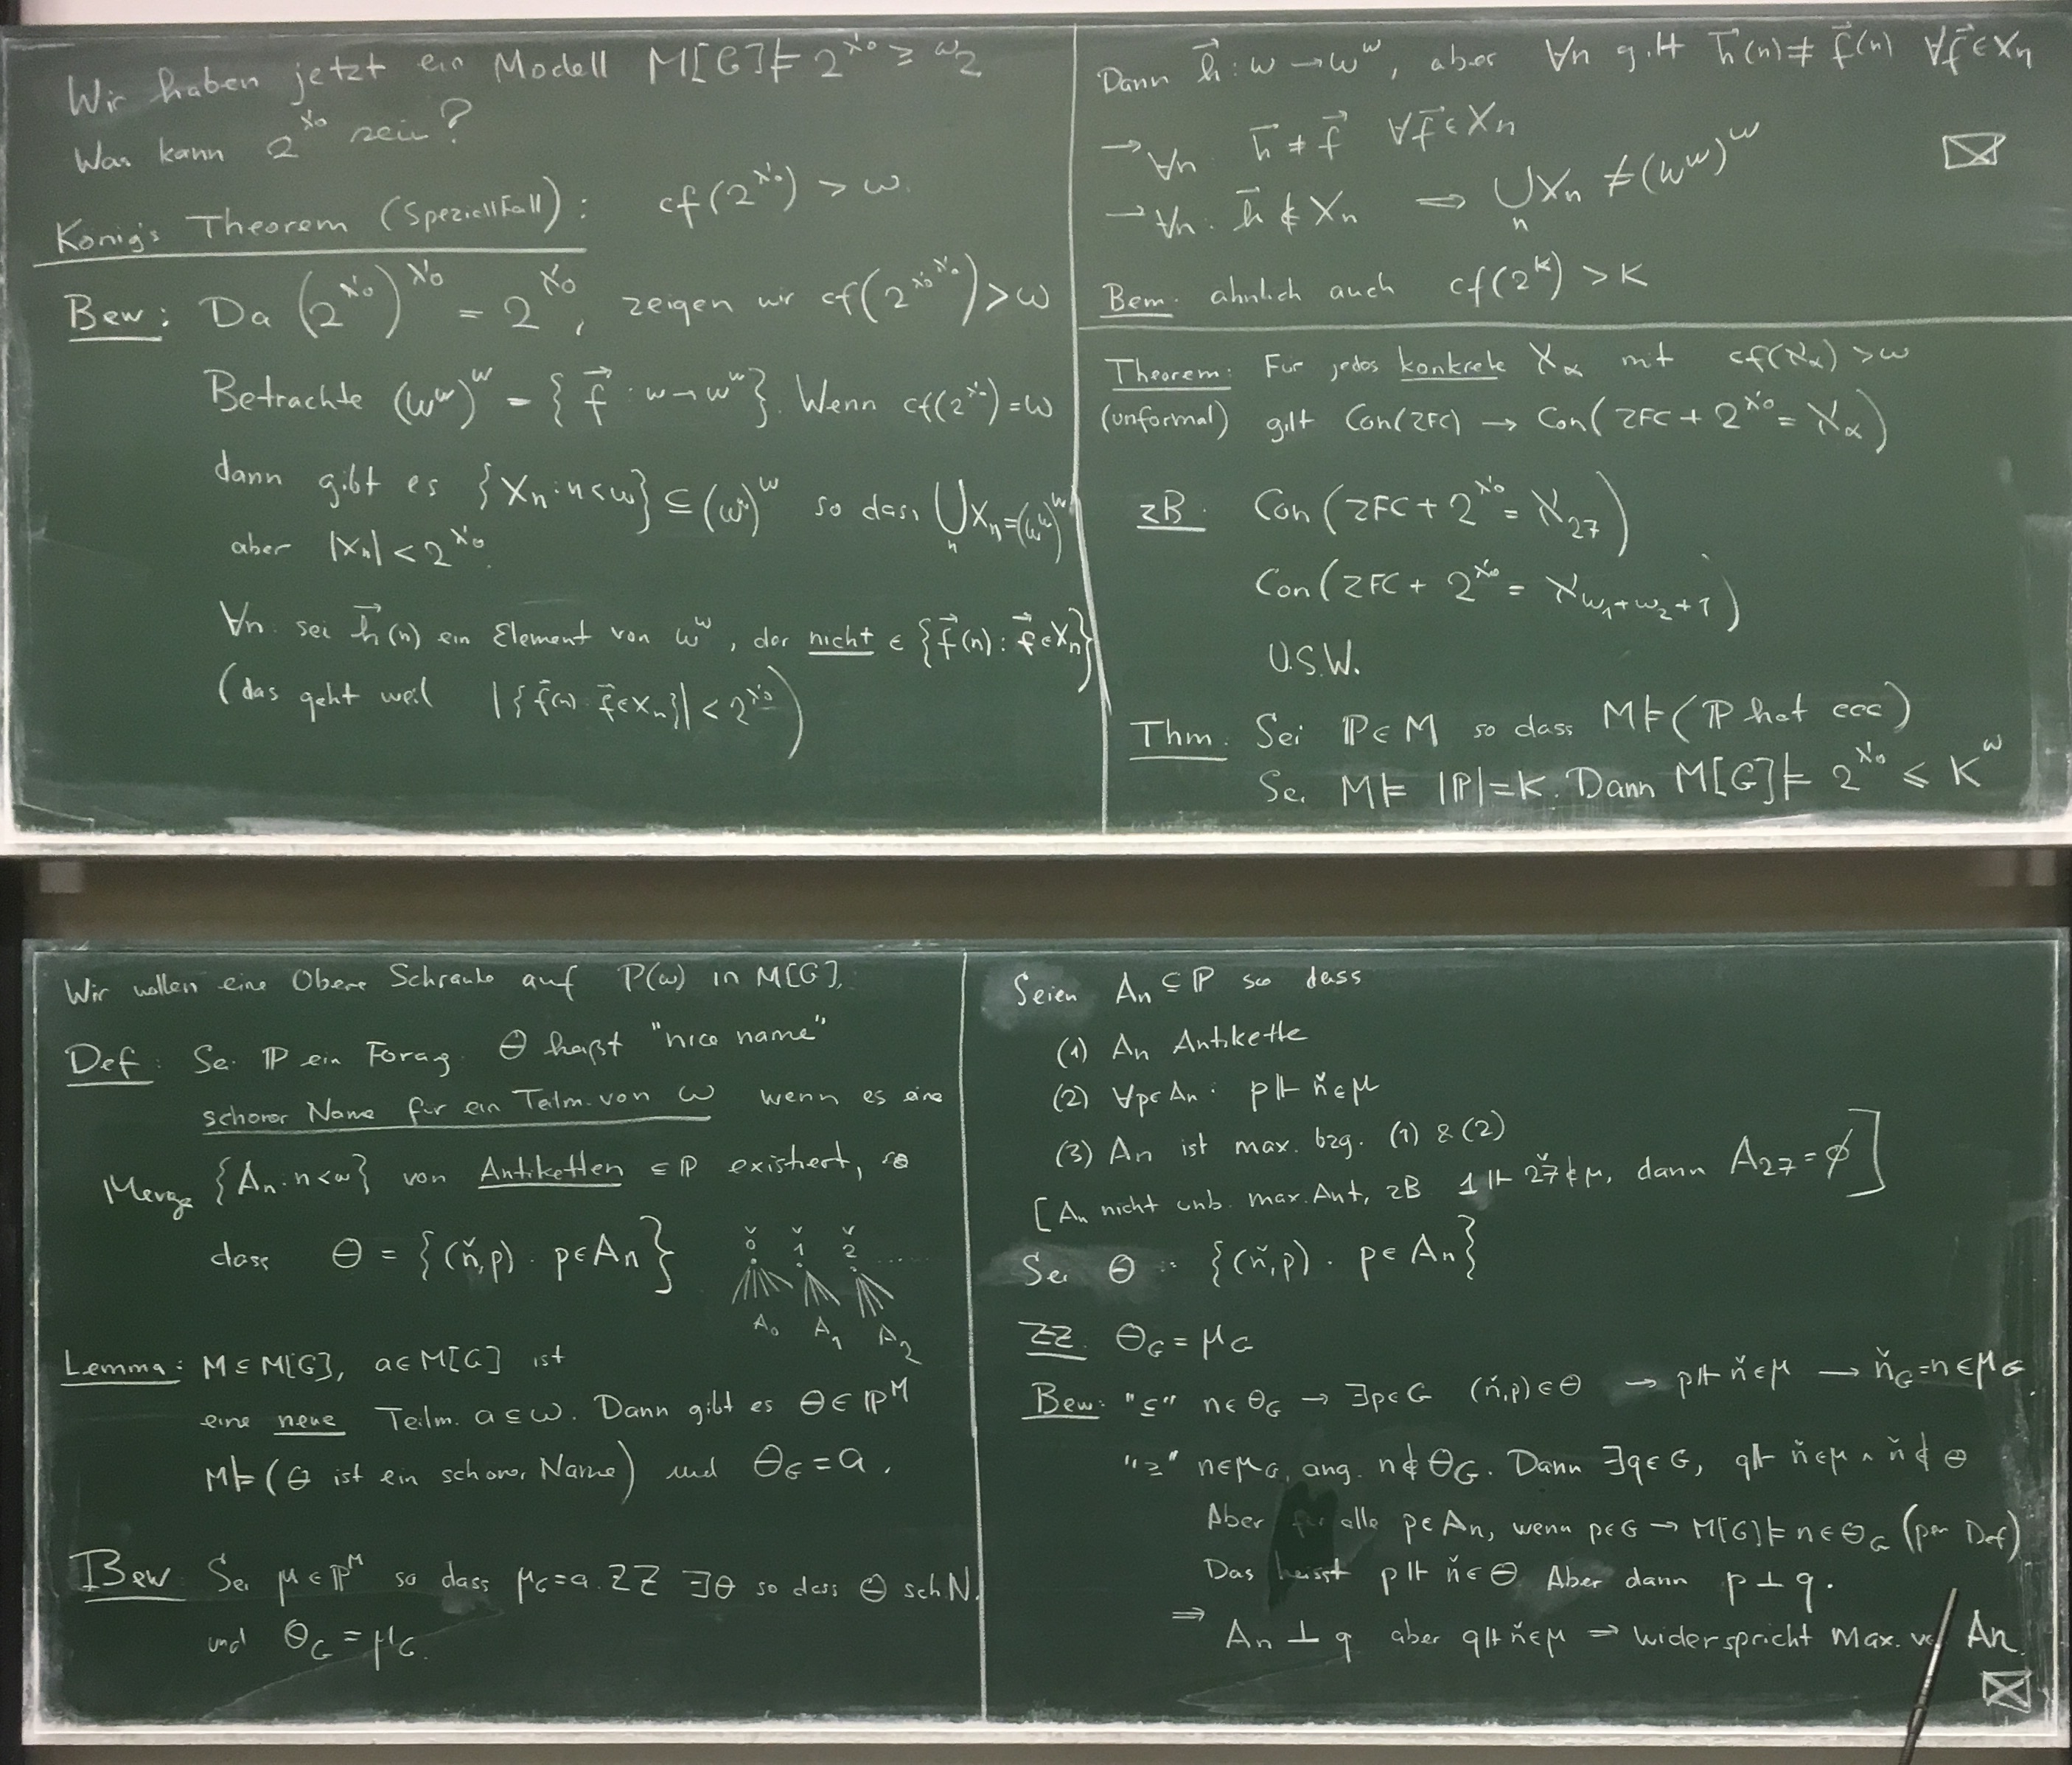 Wir haben jetzt ein Modell M[G] ⊨ 2^ℵ₀ ≥ ω₂
Was kann 2^ℵ₀ sein?
König's Theorem (Speziellfall): cf(2^ℵ₀) > ω.
Bew: Da (2^ℵ₀)^ℵ₀ = 2^ℵ₀, zeigen wir cf(2^ℵ₀^ℵ₀) > ω
Betrachte (ω^ω)^ω = { f⃗ : ω → ω^ω }. Wenn cf(2^ℵ₀) = ω
dann gibt es {Xₙ : n < ω} ⊆ (ω^ω)^ω so dass ⋃ₙ Xₙ = (ω^ω)^ω
aber |Xₙ| < 2^ℵ₀.
∀n: sei h⃗(n) ein Element von ω^ω, der nicht ∈ {f⃗(n) : f⃗ ∈ Xₙ}
(das geht weil |{f⃗(n) : f⃗ ∈ Xₙ}| < 2^ℵ₀)
Dann h⃗ : ω → ω^ω, aber ∀n gilt h⃗(n) ≠ f⃗(n) ∀f⃗ ∈ Xₙ
→ ∀n h⃗ ≠ f⃗ ∀f⃗ ∈ Xₙ
→ ∀n: h⃗ ∉ Xₙ ⟹ ⋃ₙ Xₙ ≠ (ω^ω)^ω
Bem: ähnlich auch cf(2^κ) > κ
Theorem: Für jedes konkrete ℵ_α mit cf(ℵ_α) > ω
(unformal) gilt Con(ZFC) → Con(ZFC + 2^ℵ₀ = ℵ_α)
zB. Con(ZFC + 2^ℵ₀ = ℵ₂₇)
Con(ZFC + 2^ℵ₀ = ℵ_{ω₁+ω₂+1})
U.S.W.
Thm: Sei ℙ ∈ M so dass M ⊨ (ℙ hat ccc)
Sei M ⊨ |ℙ| = κ. Dann M[G] ⊨ 2^ℵ₀ ≤ κ^ω
Wir wollen eine Obere Schranke auf P(ω) in M[G].
Def: Sei ℙ ein Forcing. Θ heißt "nice name"
schöner Name für ein Teilm. von ω wenn es eine
Menge {Aₙ : n < ω} von Antiketten ⊆ ℙ existiert, so
dass Θ = {(ň, p) : p ∈ Aₙ}
0̌ 1̌ 2̌ ......
A₀ A₁ A₂
Lemma: M ⊆ M[G], a ∈ M[G] ist
eine neue Teilm. a ⊆ ω. Dann gibt es Θ ∈ ℙ^M
M ⊨ (Θ ist ein schöner Name) und Θ_G = a.
Bew: Sei μ ∈ ℙ^M so dass μ_G = a. ZZ ∃Θ so dass Θ sch.N.
und Θ_G = μ_G.
Seien Aₙ ⊆ ℙ so dass
(1) Aₙ Antikette
(2) ∀p ∈ Aₙ : p ⊩ ň ∈ μ
(3) Aₙ ist max. bzg. (1) & (2)
[Aₙ nicht unb. max. Ant, zB 1 ⊩ 2̌7̌ ∉ μ, dann A₂₇ = ∅]
Sei Θ := {(ň, p) : p ∈ Aₙ}
ZZ. Θ_G = μ_G
Bew: "⊆" n ∈ Θ_G → ∃p ∈ G (ň, p) ∈ Θ → p ⊩ ň ∈ μ → ň_G = n ∈ μ_G.
"⊇" n ∈ μ_G, ang. n ∉ Θ_G. Dann ∃q ∈ G, q ⊩ ň ∈ μ ∧ ň ∉ Θ
Aber für alle p ∈ Aₙ, wenn p ∈ G → M[G] ⊨ n ∈ Θ_G (per Def)
Das heisst p ⊩ ň ∈ Θ. Aber dann p ⊥ q.
⟹ Aₙ ⊥ q aber q ⊩ ň ∈ μ ⟹ widerspricht Max. von Aₙ.